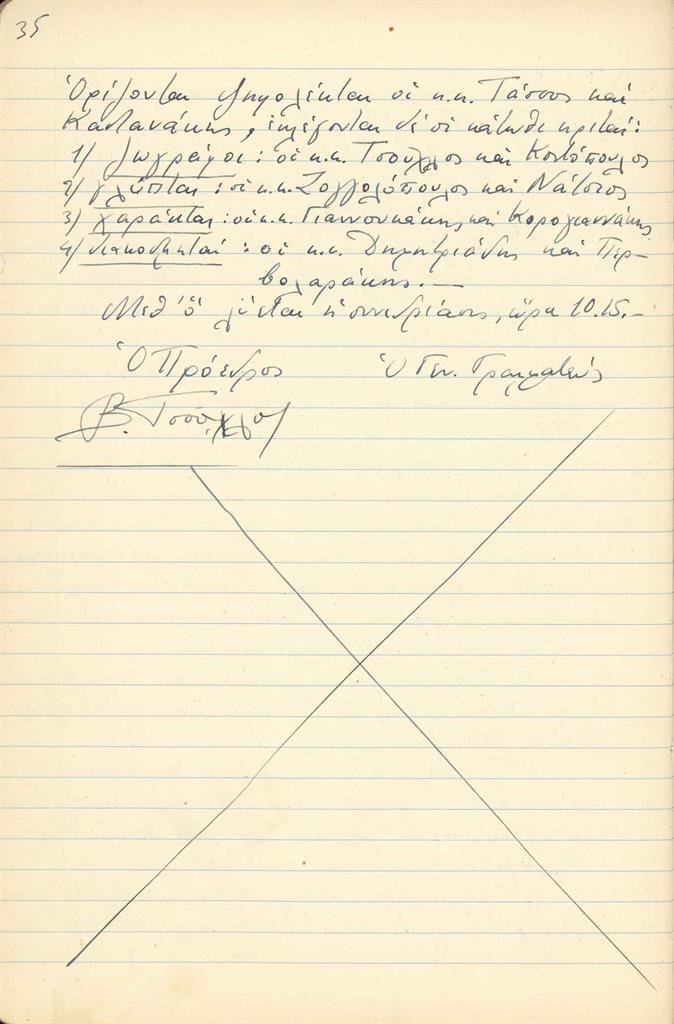 35
Ὁρίζονται ψηφολέκται οἱ κ.κ. Τάσσος καὶ
Καστανάκης, ἐκλέγονται δὲ οἱ κάτωθι κριταί:
1) ζωγράφοι: οἱ κ.κ. Τσοῦχλος καὶ Κοντόπουλος
2) γλύπται: οἱ κ.κ. Ζογγολόπουλος καὶ Νάτσιος
3) χαράκται: οἱ κ.κ. Γιαννουκάκης καὶ Κορογιαννάκης
4) διακοσμηταί: οἱ κ.κ. Δημητριάδης καὶ Περ-
βολαράκης.—
Μεθ' ὃ λύεται ἡ συνεδρίασις, ὥρα 10.15.—
Ὁ Πρόεδρος Ὁ Γεν. Γραμματεύς
Β. Τσοῦχλος